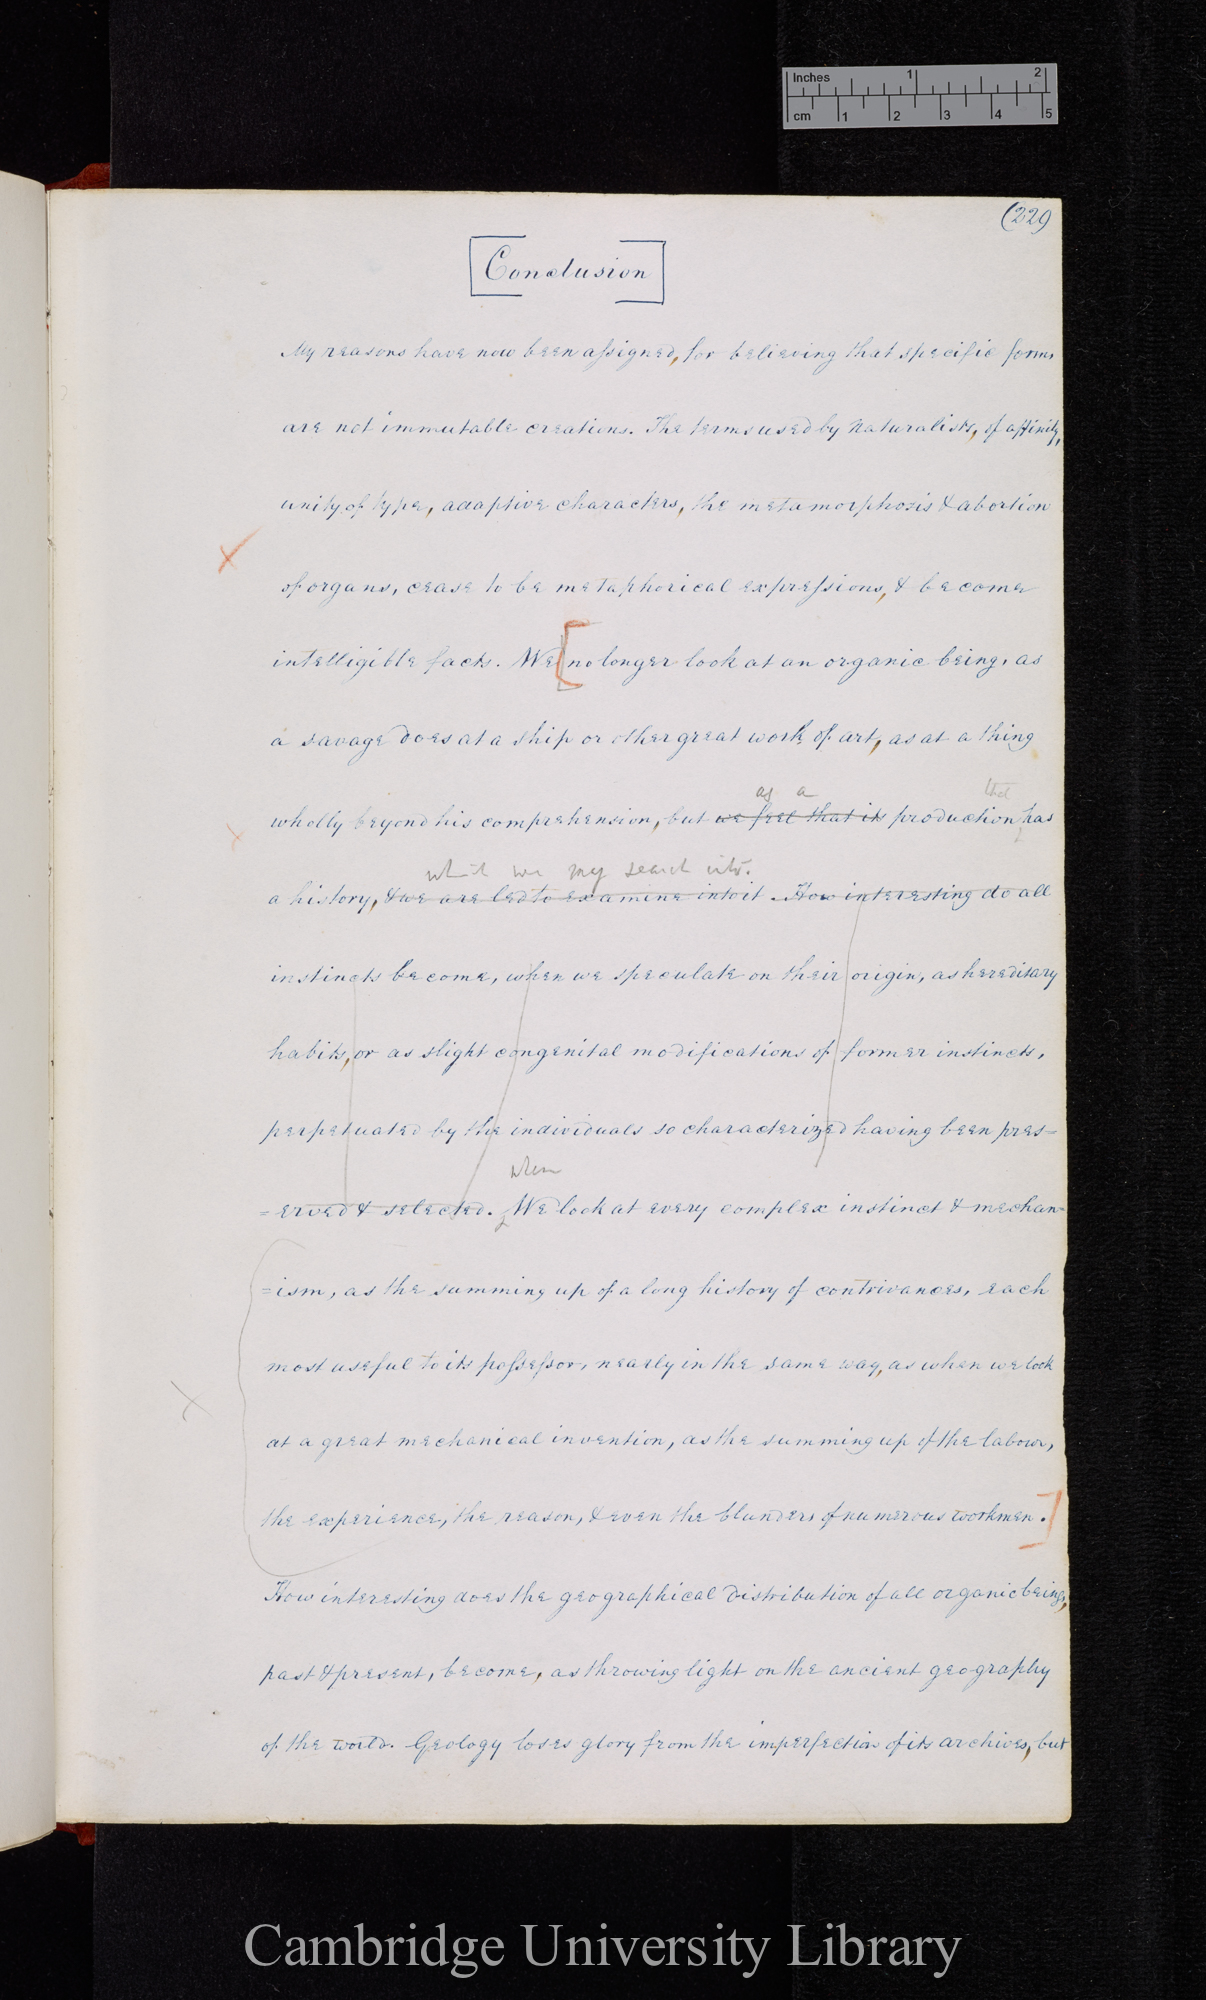 Inches 1 2
cm 1 2 3 4 5
(229
Conclusion
My reasons have now been assigned, for believing that specific forms
are not immutable creations. The terms used by Naturalists, of affinity,
unity of type, adaptive characters, the metamorphosis & abortion
of organs, cease to be metaphorical expressions, & become
intelligible facts. We [no longer look at an organic being, as
a savage does at a ship or other great work of art, as at a thing
as a that
wholly beyond his comprehension, but we feel that its production has
which we may search into.
a history, & we are led to examine into it. How interesting do all
instincts become, when we speculate on their origin, as hereditary
habits, or as slight congenital modifications of former instincts,
perpetuated by the individuals so characterized having been pres=
when
=erved & selected. We look at every complex instinct & mechan=
=ism, as the summing up of a long history of contrivances, each
most useful to its possessor, nearly in the same way, as when we look
at a great mechanical invention, as the summing up of the labour,
the experience, the reason, & even the blunders of numerous workmen.]
How interesting does the geographical distribution of all organic beings,
past & present, become, as throwing light on the ancient geography
of the world. Geology loses glory from the imperfection of its archives, but
Cambridge University Library